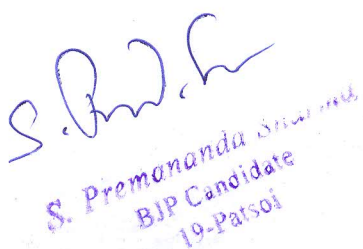 S. Premananda Sharma
BJP Candidate
19-Patsoi